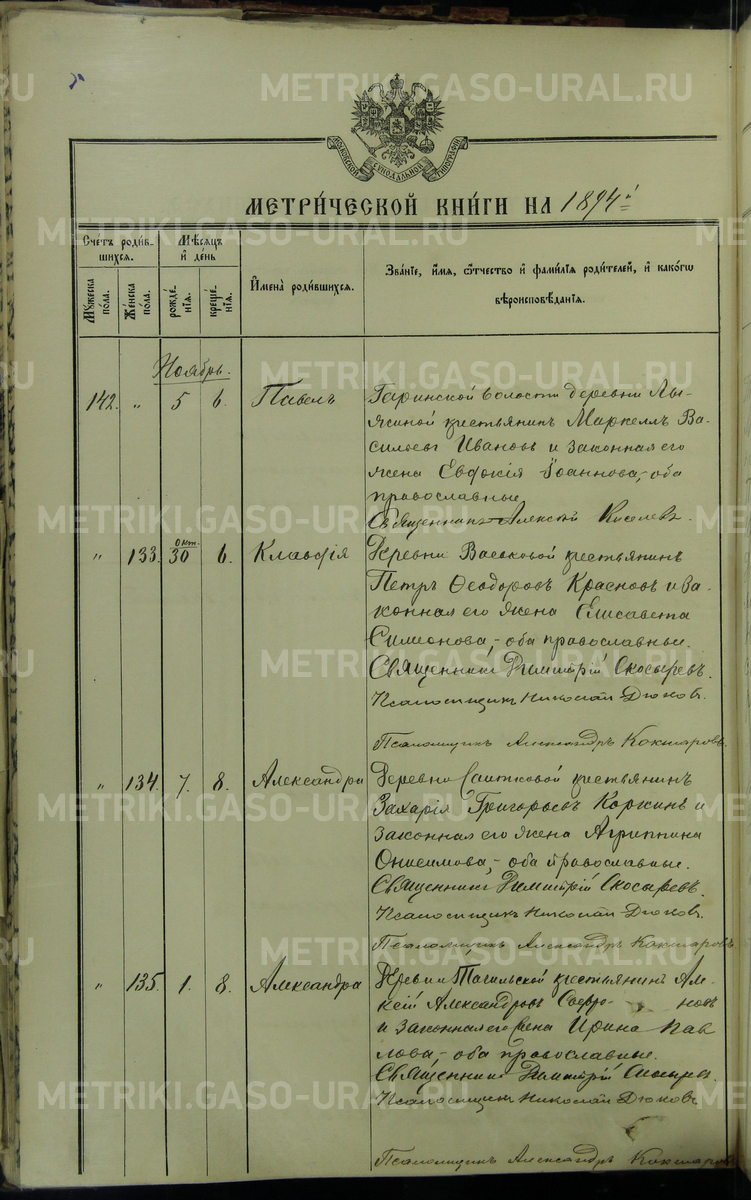 METRIKI.GASO-URAL.RU
МОСКОВСКОЙ СѴНОДАЛЬНОЙ ТИПОГРАФІИ
МЕТРИ́ЧЕСКОЙ КНИ́ГИ НА 1894 г.
Сче́тъ роди́в-
шихся.
Мѣ́сяцъ
и҆ день
Мꙋ́жеска по́ла.
Же́нска по́ла.
рожде́-
нїѧ.
креще́-
нїѧ.
И҆мена̀ роди́вшихся.
Зва́нїе, и҆́мѧ, ѻ҆́тчество и҆ фами́лїѧ роди́телей, и҆ како́гѡ
вѣроисповѣ́данїѧ.
Ноябрь.
142. „ 5 6. Павелъ
Гаринской волости деревни
крестьянинъ Маркеллъ Ва-
сильевъ Ивановъ и законная его
жена Евдокія Іоаннова,- оба
православные
Священникъ Алексій Киселевъ.
„ 133. окт. 30 6. Клавдія
Деревни Васьковой крестьянинъ
Петръ Ѳеодоровъ Красновъ и за-
конная его жена Елисавета
Симеонова,- оба православные.
Священникъ Димитрій Скосыревъ.
Псаломщикъ Николай Дюковъ.
Псаломщикъ Александръ Кокшаровъ.
„ 134. 7. 8. Александра
Деревни Саитковой крестьянинъ
Захарія Григорьевъ Коркинъ и
законная его жена Агриппина
Онисимова,- оба православные.
Священникъ Димитрій Скосыревъ.
Псаломщикъ Николай Дюковъ.
Псаломщикъ Александръ Кокшаровъ
„ 135. 1. 8. Александра
Деревни Тагильской крестьянинъ Але-
ксій Александровъ новъ
и законная его жена Ирина Пав
лова,- оба православные.
Священникъ Димитрій Скосырев.
Псаломщикъ Николай Дюковъ
Псаломщикъ Александръ Кокшаровъ